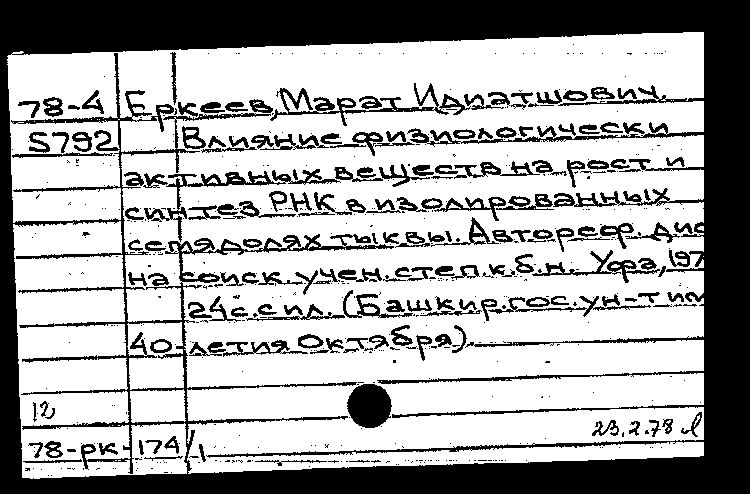 78-4 Еркеев, Марат Идиатшович.
5792 Влияние физиологически
активных веществ на рост и
синтез РНК в изолированных
семядолях тыквы. Автореф. дис
на соиск. учен. степ. к.б.н. Уфа, 197
24с. с ил. (Башкир. гос. ун-т им
40-летия Октября)
12
78-рк-174/1
23.2.78